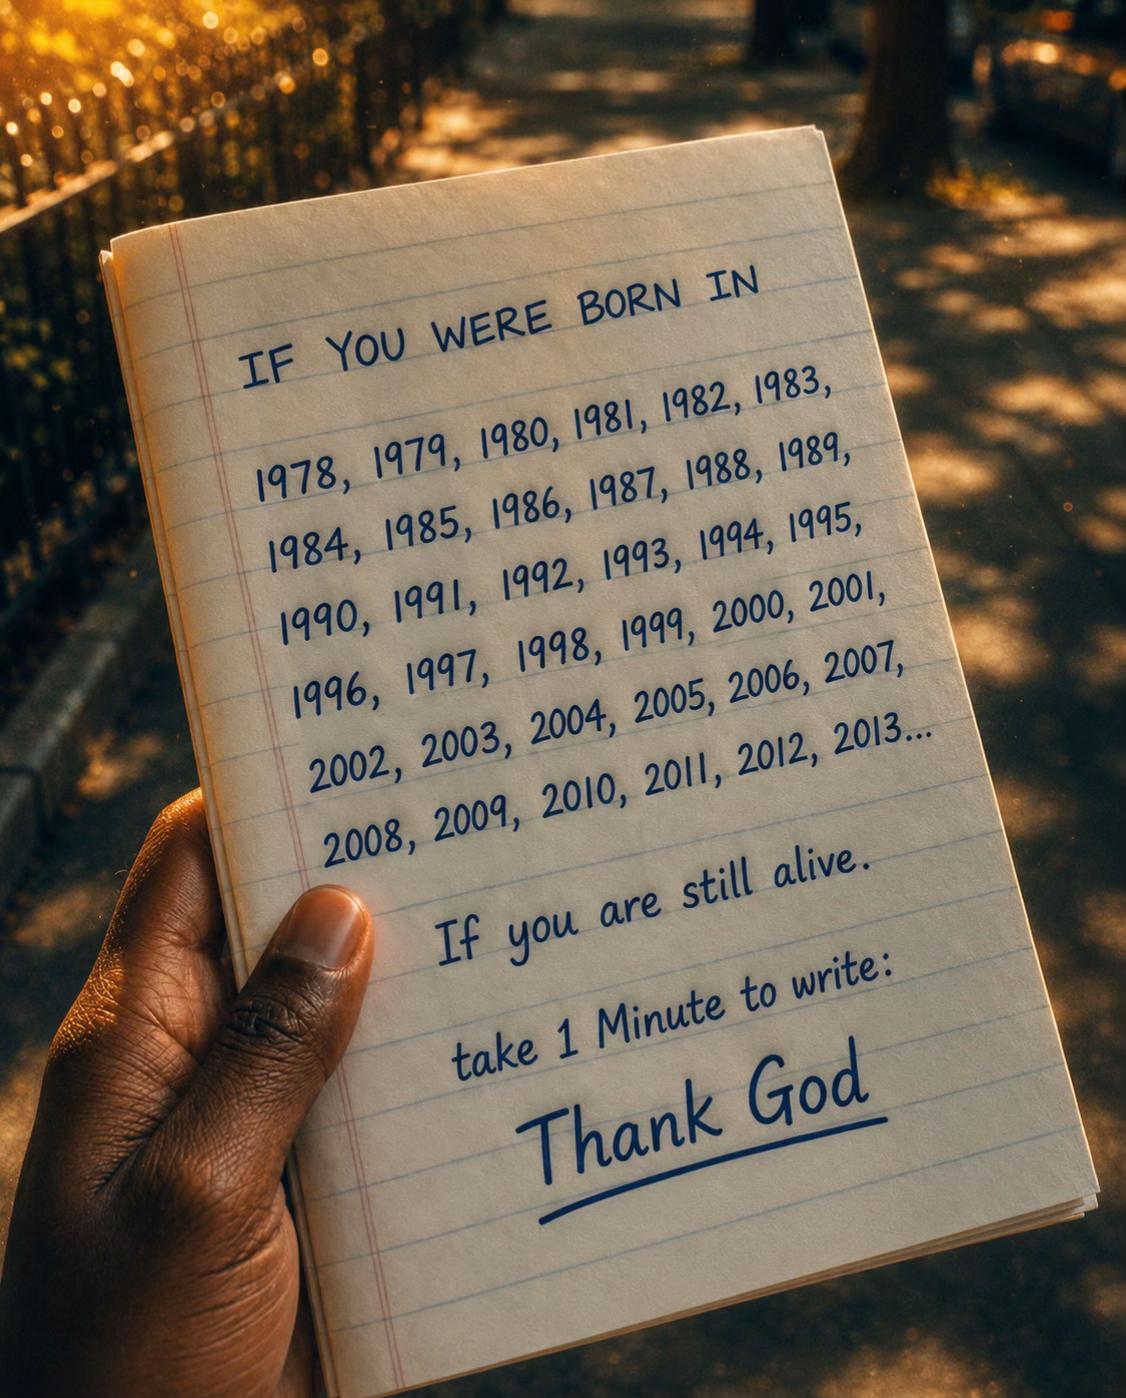 IF YOU WERE BORN IN
1978, 1979, 1980, 1981, 1982, 1983,
1984, 1985, 1986, 1987, 1988, 1989,
1990, 1991, 1992, 1993, 1994, 1995,
1996, 1997, 1998, 1999, 2000, 2001,
2002, 2003, 2004, 2005, 2006, 2007,
2008, 2009, 2010, 2011, 2012, 2013...
If you are still alive.
take 1 Minute to write:
Thank God